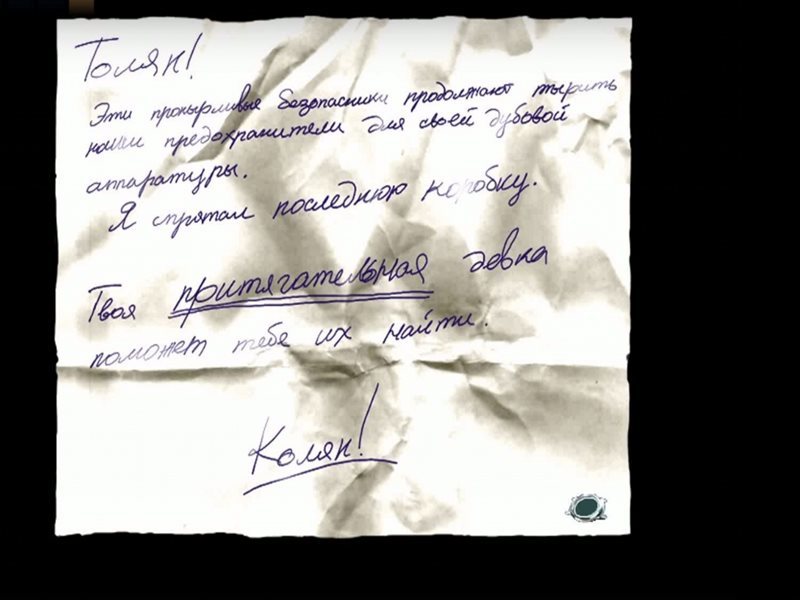 Толян!
Эти пронырливые безопасники продолжают тырить
наши предохранители для своей дубовой
аппаратуры.
Я спрятал последнюю коробку.
Твоя притягательная девка
поможет тебе их найти.
Колян!